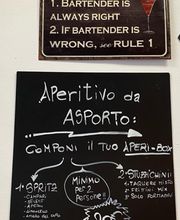 1. BARTENDER IS
ALWAYS RIGHT
2. IF BARTENDER IS
WRONG, see RULE 1
APERITIVO da
ASPORTO:
COMPONI il TUO APERI-BOX
1° SPRITZ
CAMPARI
SELECT
APEROL
MINIMO
PER 2
PERSONE!!
2° STUZZICHINI